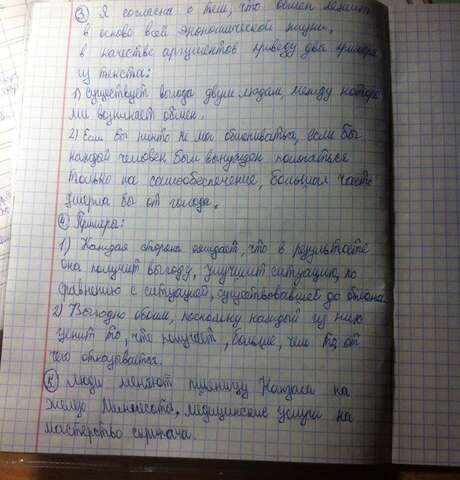 ③ Я согласна с тем, что обмен лежит
в основе всей экономической жизни,
в качестве аргументов приведу два примера
из текста:
1) Существует выгода двум людям, между которы
ми возникает обмен.
2) Если бы никто не мог обмениваться, если бы
каждый человек был вынужден полагаться
только на самообеспечение, большая часть
умерла бы от голода.
④ Примеры:
1) Каждая сторона ожидает, что в результате
она получит выгоду, улучшит ситуацию, по
сравнению с ситуацией, существовавшей до обмена
2) Выгодно обоим, поскольку каждый из них
ценит то, что получает, больше, чем то, от
чего отказывается.
Люди меняют пшеницу Канзаса на
железо Миннесота, медицинские услуги на
мастерство скрипача.